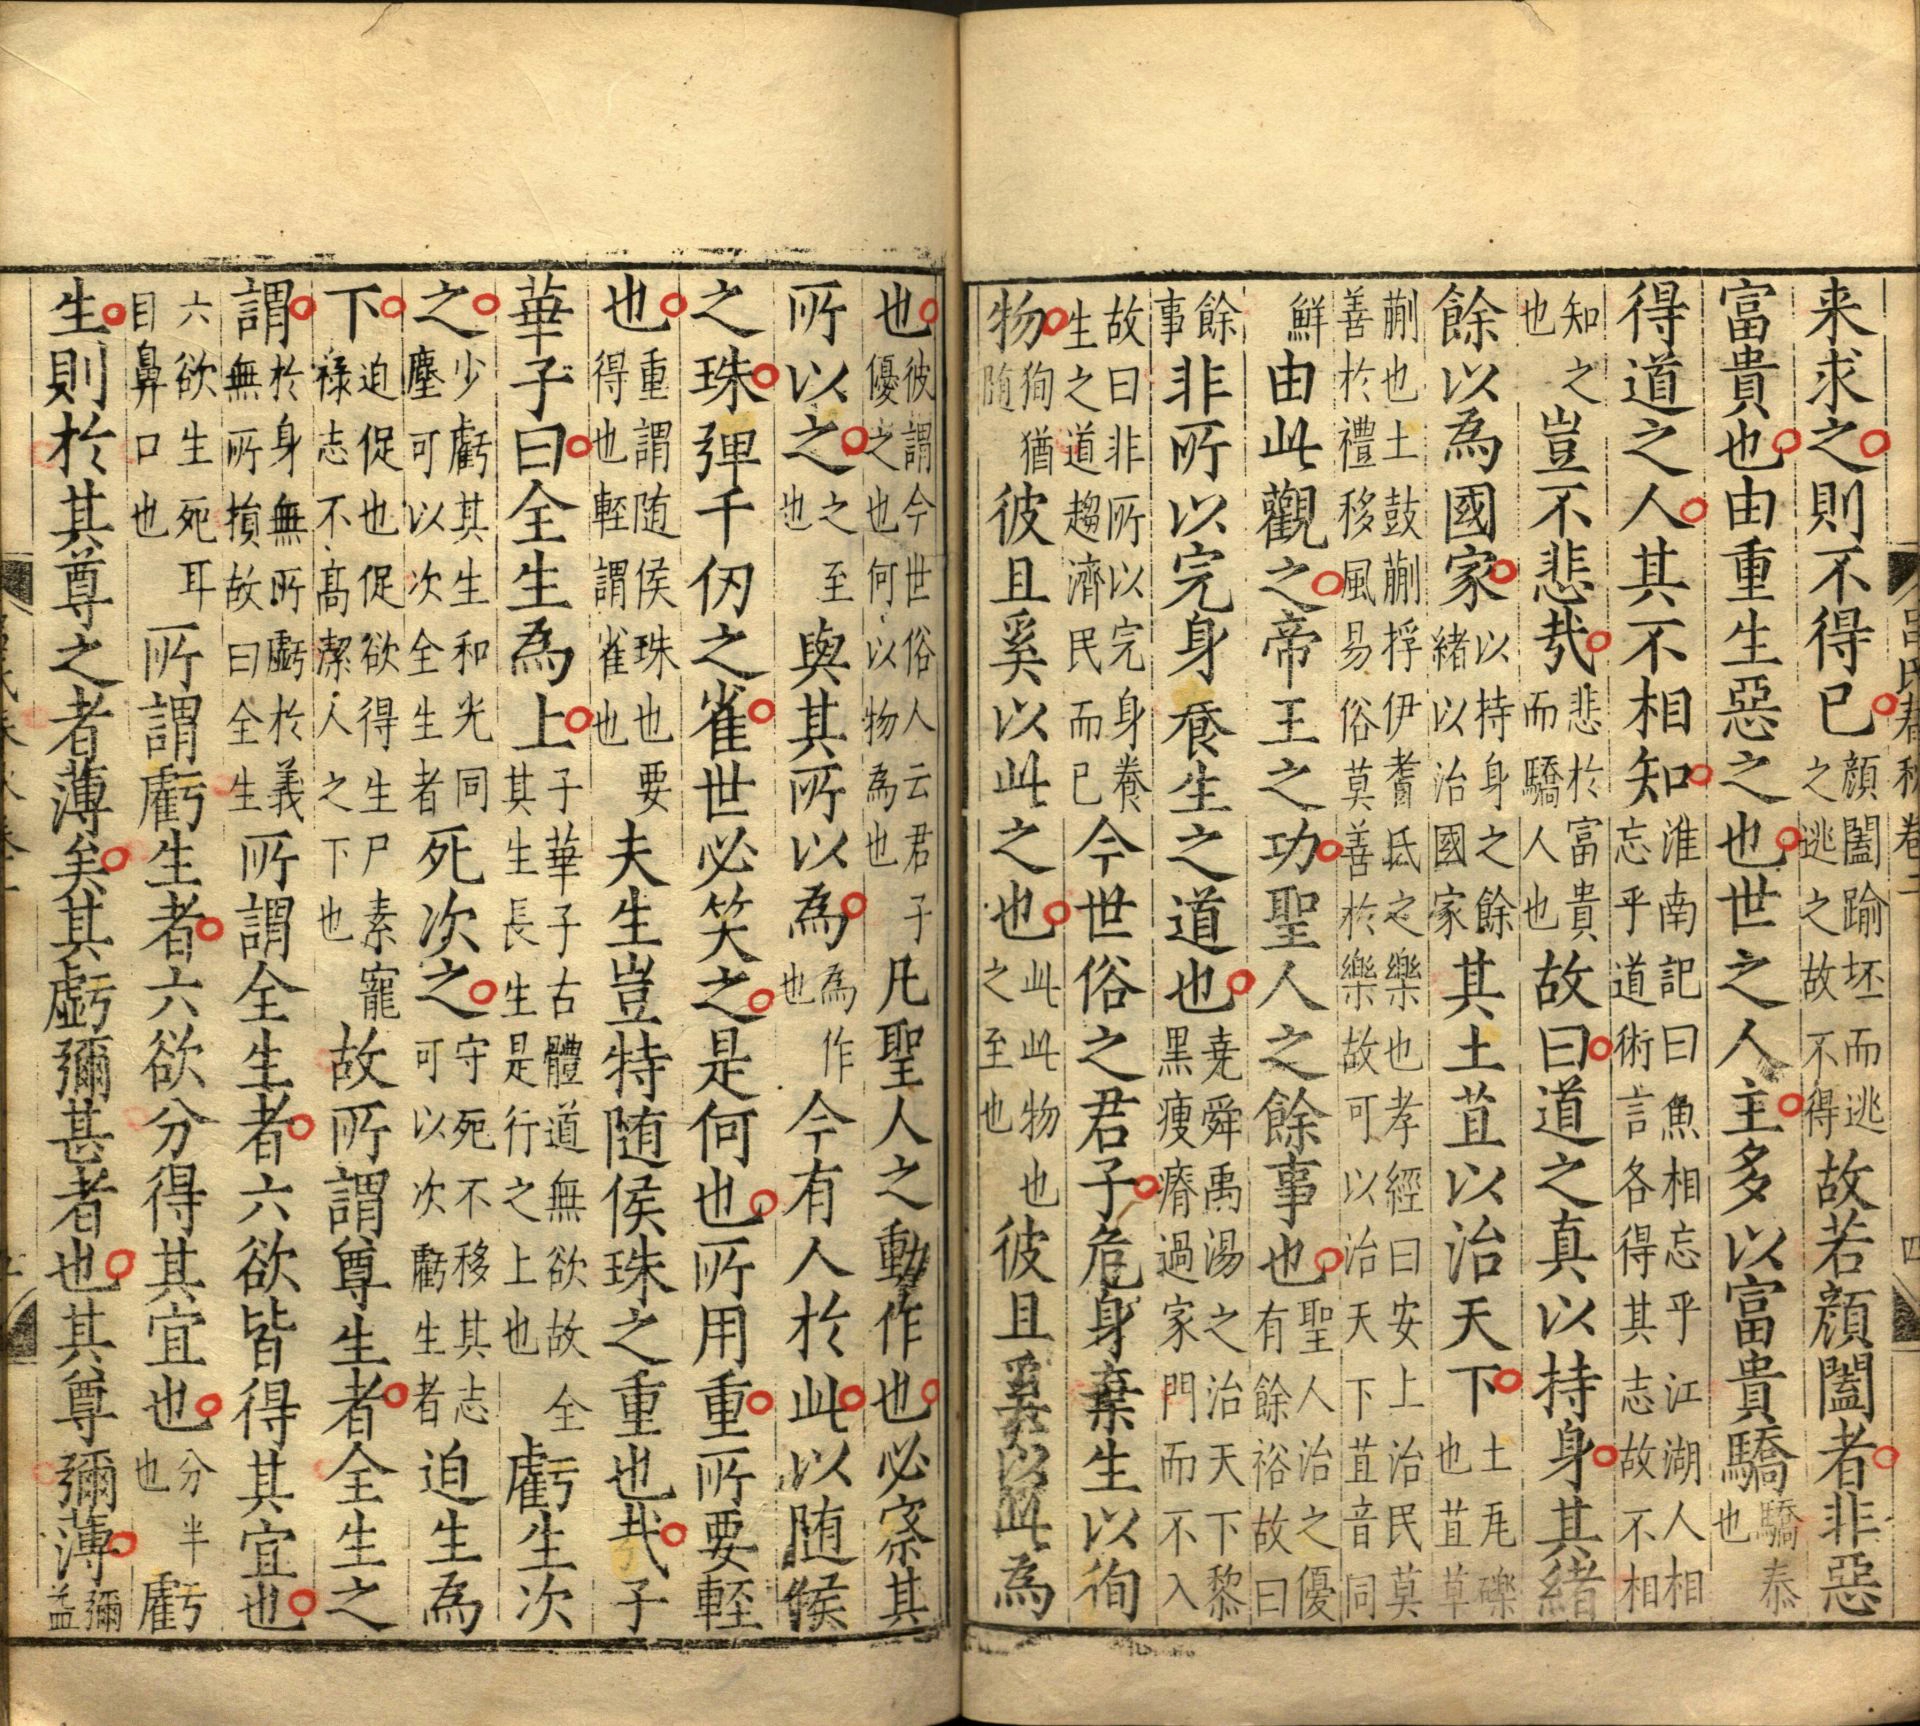 呂氏春秋 卷二 四
来求之則不得已顔闔踰坯而逃之逃之故不得故若顔闔者非惡
富貴也由重生惡之也世之人主多以富貴驕驕泰也
得道之人其不相知淮南記曰魚相忘乎江湖人相忘乎道術言各得其志故不相
知之也豈不悲哉悲於富貴而驕人也故曰道之真以持身其緒
餘以為國家以持身之餘緒以治國家其土苴以治天下土瓦礫也苴草
蒯也土鼓蒯捊伊耆氏之樂也孝經曰安上治民莫善於禮移風易俗莫善於樂故可以治天下苴音同
鮮由此觀之帝王之功聖人之餘事也聖人治之優有餘裕故曰
餘事非所以完身養生之道也堯舜禹湯之治天下黎黑瘦瘠過家門而不入
故曰非所以完身養生之道趨濟民而已今世俗之君子危身棄生以徇
物徇猶随彼且奚以此之也此此物也之至也彼且奚以此為
也彼謂今世俗人云君子優之也何以物為也凡聖人之動作也必察其
所以之之至也與其所以為為作也今有人於此以随侯
之珠彈千仞之雀世必笑之是何也所用重所要輕
也重謂随侯珠也要得也輕謂雀也夫生豈特随侯珠之重也哉子
華子曰全生為上子華子古體道無欲故全其生長生是行之上也虧生次
之少虧其生和光同塵可以次全生者死次之守死不移其志可以次虧生者迫生為
下迫促也促欲得生尸素寵祿志不高潔人之下也故所謂尊生者全生之
謂於身無所虧於義無所損故曰全生所謂全生者六欲皆得其宜也
六欲生死耳目鼻口也所謂虧生者六欲分得其宜也分半也虧
生則於其尊之者薄矣其虧彌甚者也其尊彌薄彌益